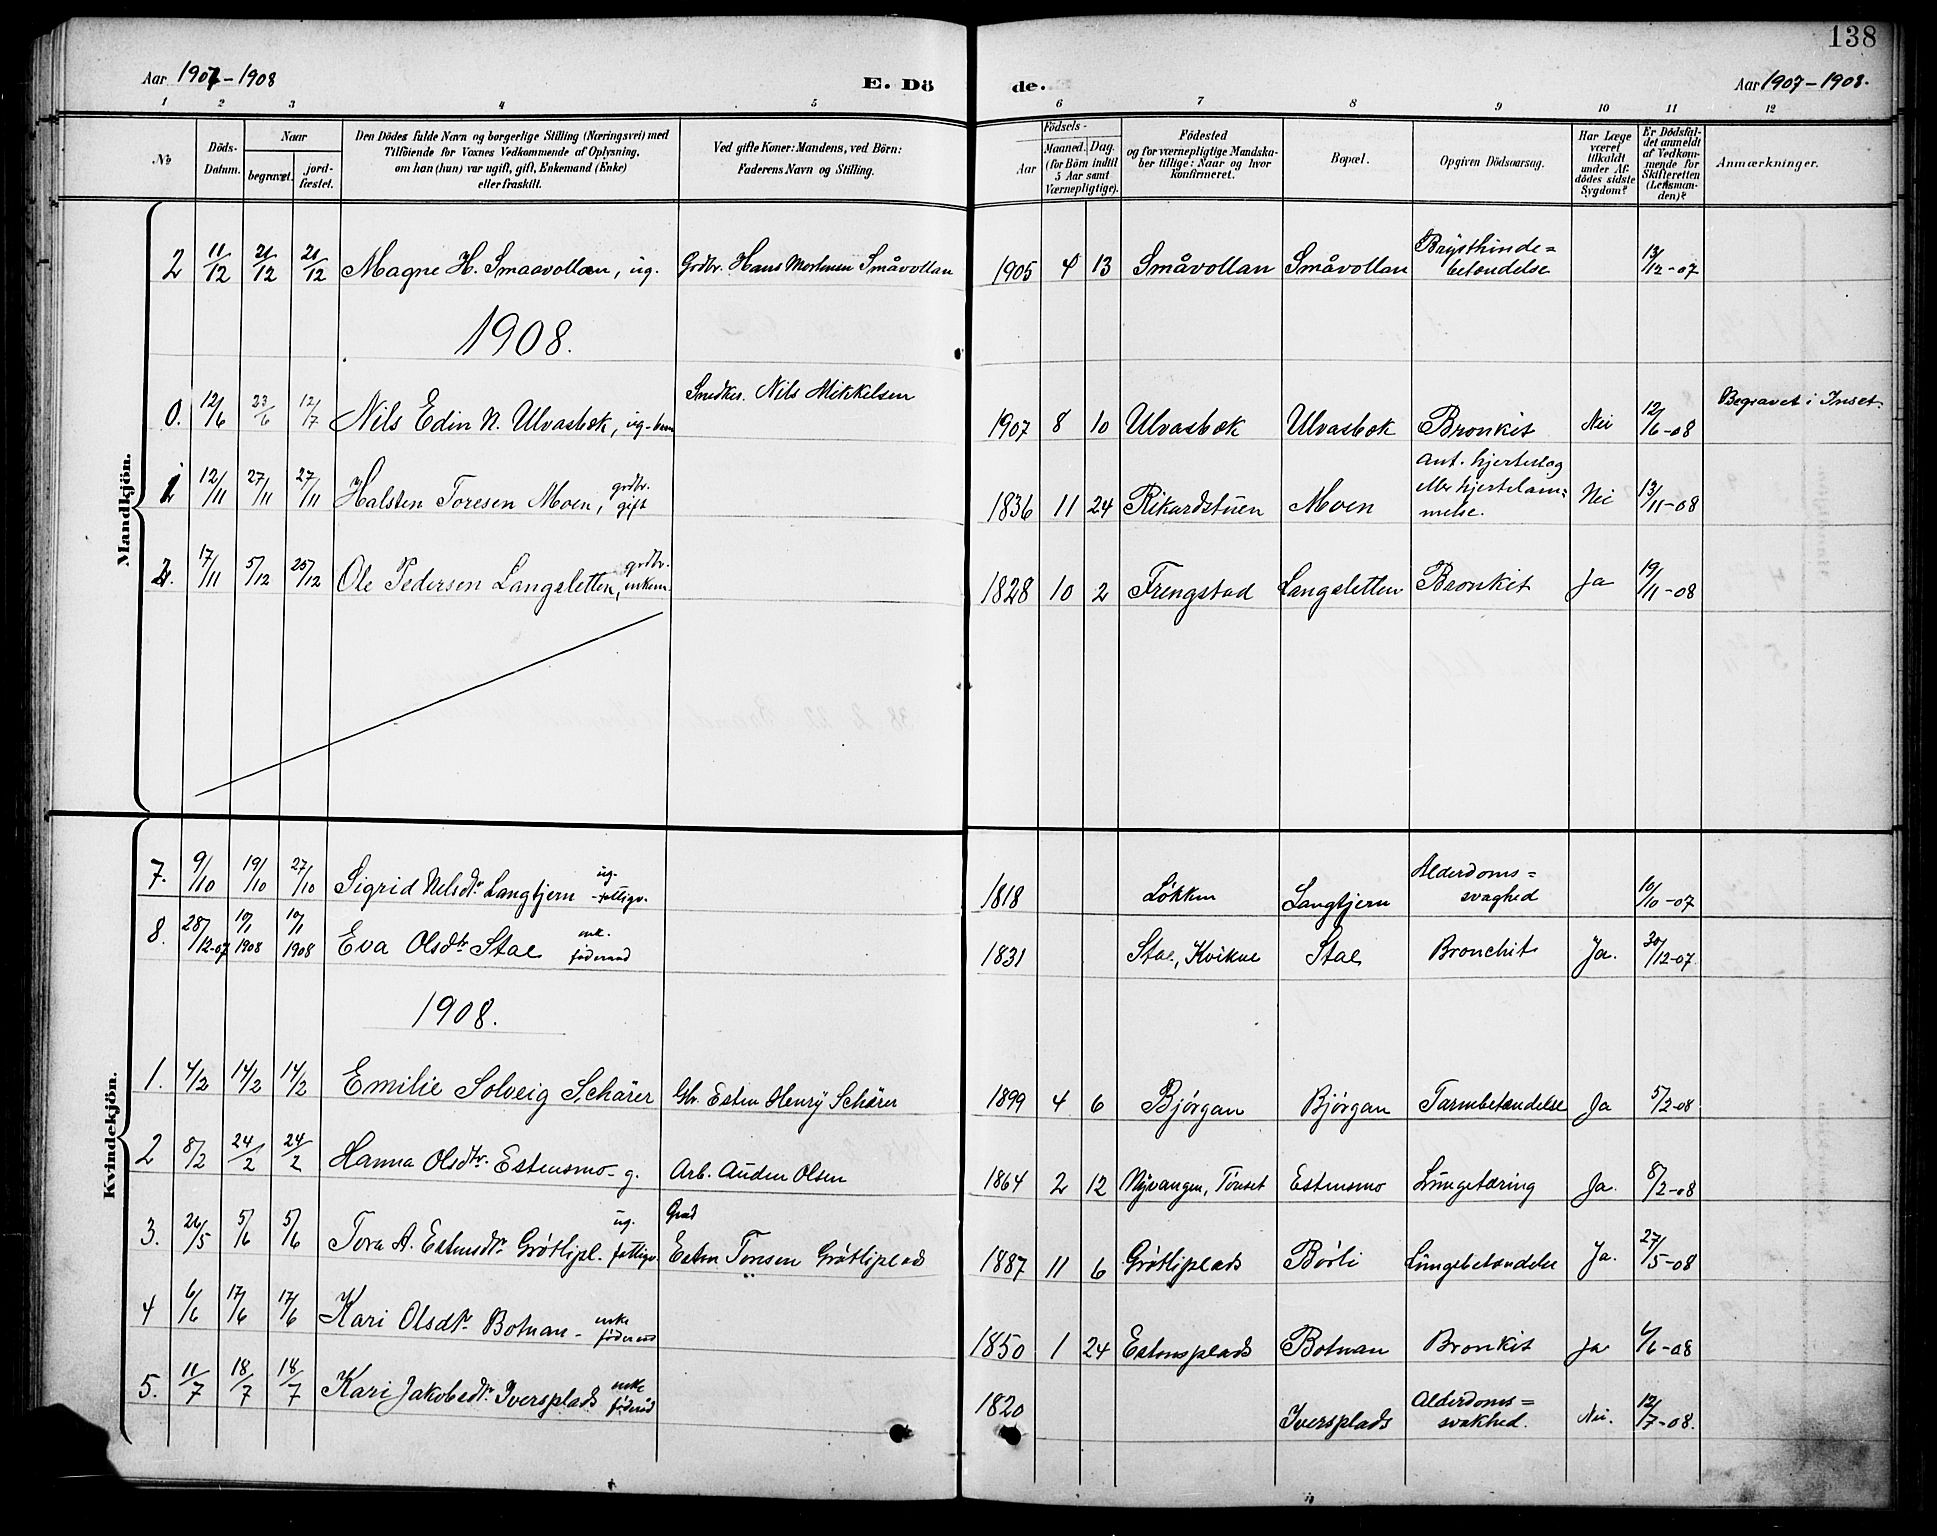 138
Aar 1907 - 1908
E. Dö de.
Aar 1907 - 1908.
1 2 3 4 5 6 7 8 9 10 11 12
No
Döds-Datum.
Naar
begravet.
jord-fæstet.
Den Dödes fulde Navn og borgerlige Stilling (Næringsvei) med
Tilföiende for Voxnes Vedkommende af Oplysning,
om han (hun) var ugift, gift, Enkemand (Enke)
eller fraskilt.
Ved gifte Koner: Mandens, ved Börn:
Faderens Navn og Stilling.
Födsels-
Aar
Maaned. Dag.
(for Börn indtil
5 Aar samt
Værnepligtige).
Födested
og for værnepligtige Mandska-
ber tillige: Naar og hvor
konfirmeret.
Bopæl.
Opgiven Dödsaarsag.
Har Læge
været
tilkaldt
under Af-
dödes sidste
Sygdom?
Er Dödsfal-
det anmeldt
af Vedkom-
mende for
Skifteretten
(Lensman-
den)?
Anmærkninger.
Mandkjön.
2 11/12 21/12 21/12 Magne H. Smaavollan, ug. Grdbr. Hans Mortensen Småvollan 1905 4 13 Småvollan Småvollan Brysthinde=betændelse 13/12-07
1908.
0. 12/6 23/6 12/7 Nils Edin N. Ulvasbæk, ug-barn Snedker. Nils Mikkelsen 1907 8 10 Ulvasbæk Ulvasbæk Bronkit Nei 12/6-08 Begravet i Inset.
1 12/11 27/11 27/11 Halsten Toresen Moen, grdbr. gift 1836 11 24 Rikardstuen Moen Ant. hjerteslag eller hjertelam=melse. Nei 13/11-08
2. 17/11 5/12 25/12 Ole Pedersen Langsletten, grdbr. enkem 1828 10 2 Frengstad Langsletten Bronkit Ja 19/11-08
Kvindekjön.
7. 9/10 19/10 27/10 Sigrid Nilsdtr Langtjern ug. -fattigv. 1818 Løkken Langtjern Alderdoms=svaghed 10/10-07
8. 28/12-07 10/1 1908 10/1 1908 Eva Olsdtr Stai enk. føderaad 1831 Stai, Kvikne Stai Bronchit Ja. 30/12-07
1908.
1. 4/2 14/2 14/2 Emilie Solveig Schärer Gbr. Esten Henry Schärer 1899 4 6 Bjørgan Bjørgan Tarmbetændelse Ja 5/2-08
2 8/2 24/2 24/2 Hanna Olsdtr. Estensmo - g. Arb. Auden Olsen 1864 2 12 Nyvangen, Tønset Estensmo Lungetæring Ja. 8/2-08
3. 26/5 5/6 5/6 Tora A. Estensdtr Grøtlipl. ug. fattigv Esten Tønsen Grøtliplads 1887 11 6 Grøtliplads Børli Lungebetændelse Ja. 27/5-08
4 6/6 17/6 17/6 Kari Olsdtr Botnan - enke føderaad 1850 1 24 Estensplads Botnan Bronkit Ja 6/6-08
5. 11/7 18/7 18/7 Kari Jakobsdtr Iversplads enke føderåd 1820 Iversplads Alderdoms=svakhed. Nei. 12/7-08.